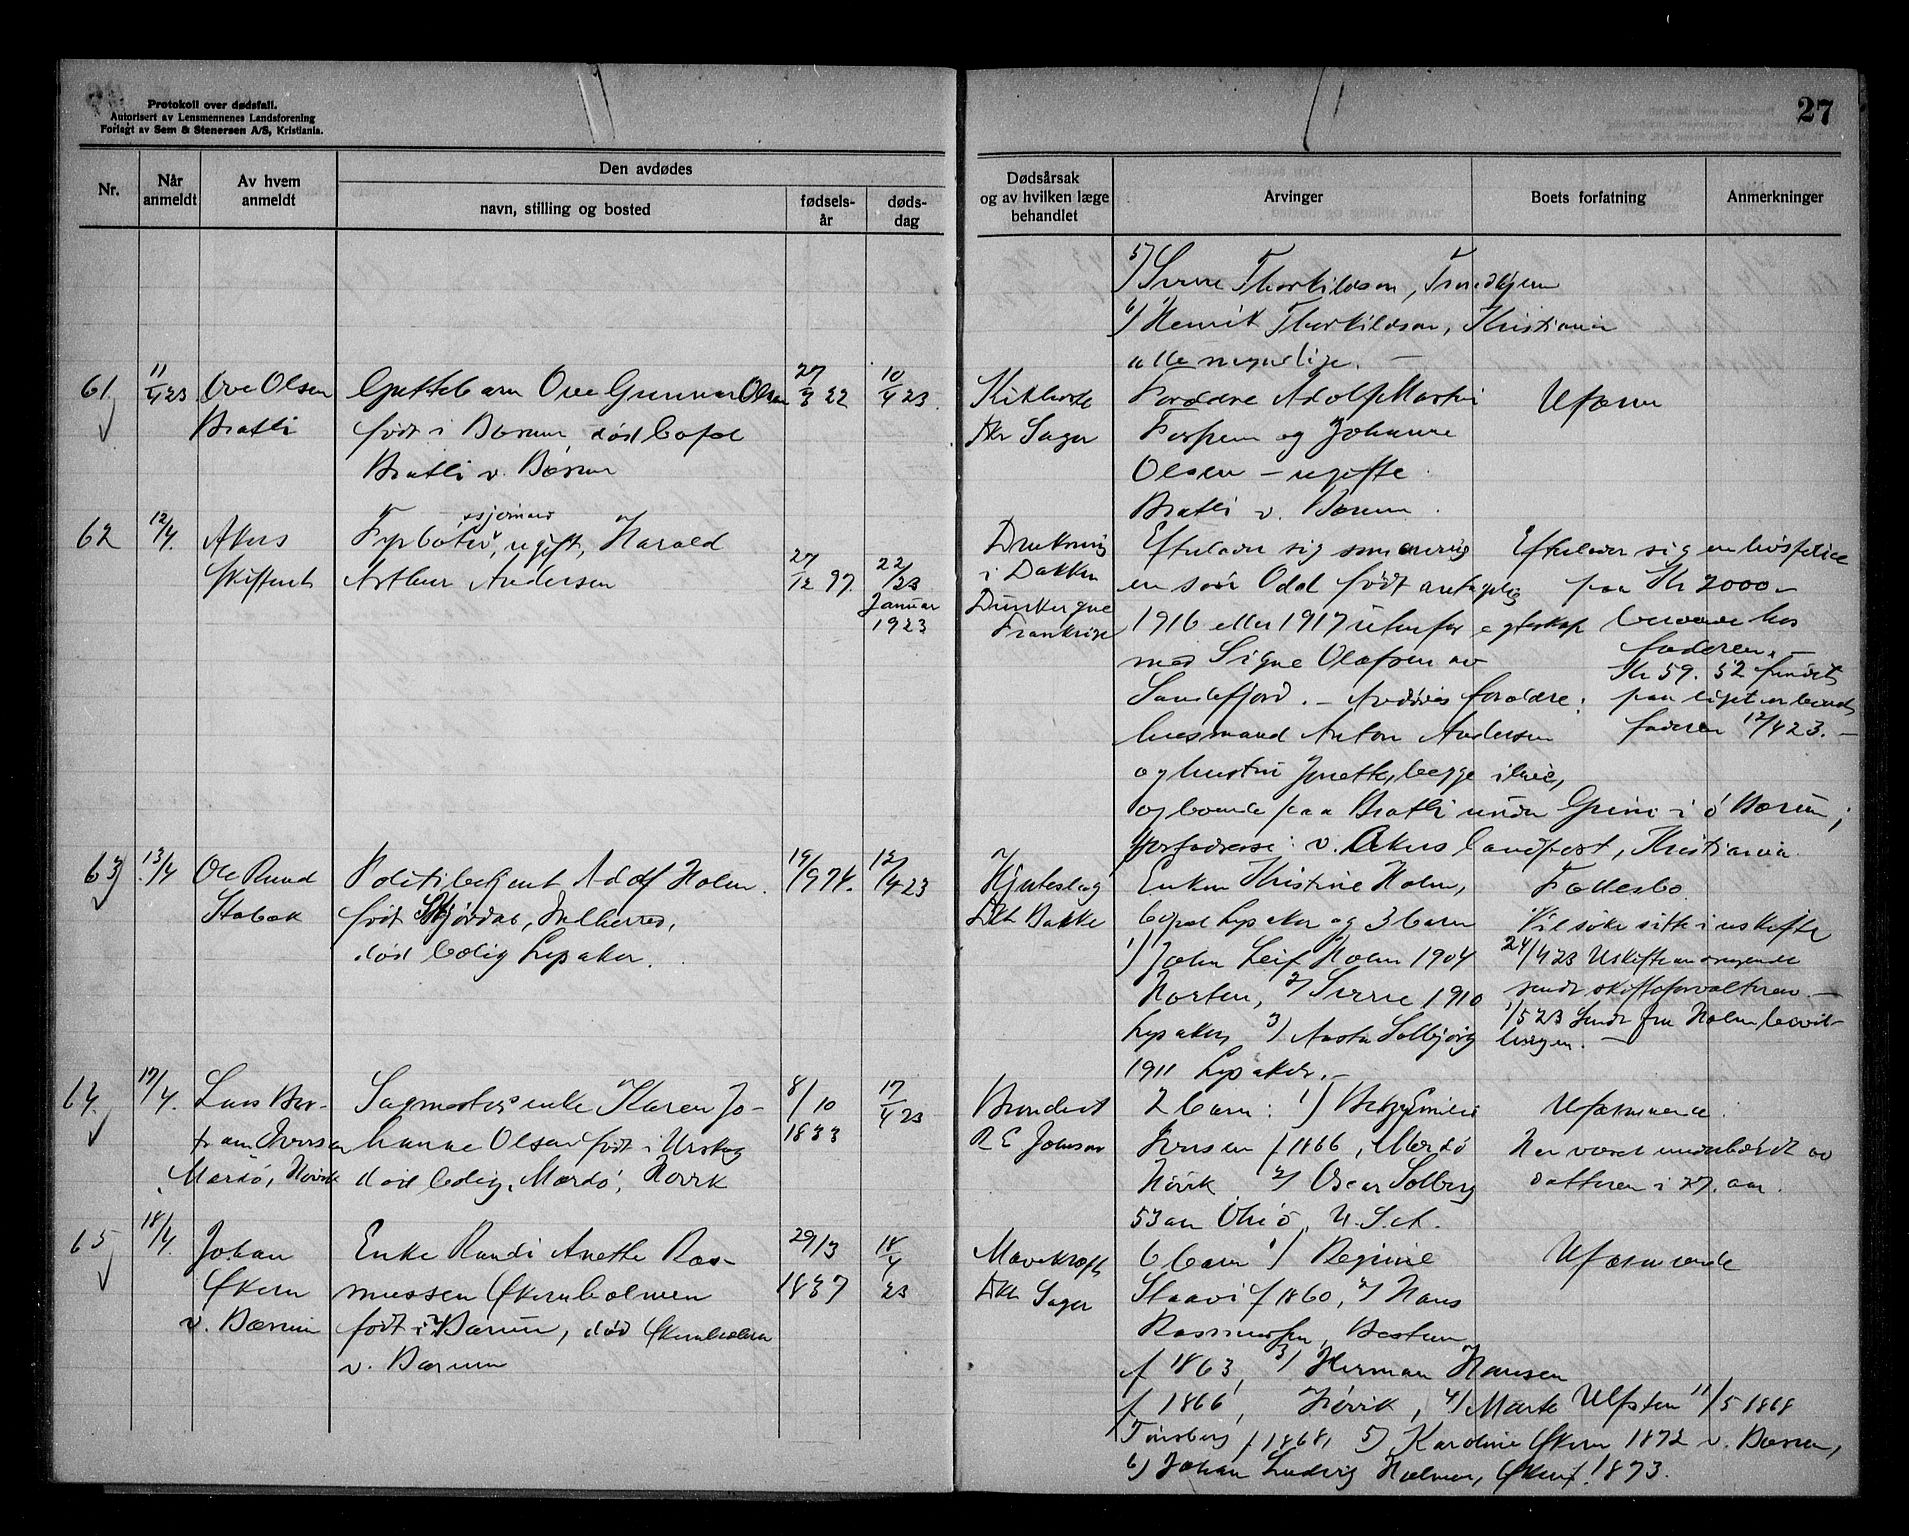 Protokoll over dødsfall.
Autorisert av Lensmennenes Landsforening
Forlagt av Sem & Stenersen A/S, Kristiania.
27
Nr.
Når anmeldt
Av hvem anmeldt
Den avdødes
navn, stilling og bosted
fødselsår
dødsdag
Dødsårsak og av hvilken læge behandlet
Arvinger
Boets forfatning
Anmerkninger
5) Sverre Thorkildsen, Trondhjem
6) Henrik Thorkildsen, Kristiania
alle myndige. —
61
11/4 23
Ove Olsen
Bratli
Guttebarn Ove Gunnar Olsen
født i Bærum, død bopæl
Bratli v. Bærum
27/3 22
10/4 23.
Kikhoste
Dr Sager
Forældre Adolf Martin
og Johanne
Olsen – ugifte
Bratli v. Bærum.
Uformu
62
12/4.
Akers
skifteret
Fyrbøter, sjømand, ugift, Harald
Arthur Andersen
27/12 97.
22/23
Januar
1923
Drukning
i Dokken
Dunkerque
Frankrige
Efterlader sig
en søn Odd født antagelig
1916 eller 1917 utenfor egteskap
med Signe Olafsen av
Sandefjord. – Avdødes forældre:
husmand Anton Andersen
og hustru Jenette, begge ilive,
og boende paa Bratli under Grini i ø Bærum;
postadresse: v. Akers landpost, Kristiania.
Efterlader sig en
paa Kr 2000 –
beroende hos
faderen. –
Kr 59. 52 fundet
paa liget er
faderen 12/4 23. –
63
13/4
Ole Ruud
Stabæk
Politibetjent Adolf Holm.
født Skjørdal, Inherred,
død bolig Lysaker.
19/9 74.
12/4 23
Hjerteslag
Dr Bakke
Enken Kristine Holm,
bopæl Lysaker og 3 barn
1) John Leif Holm 1904
Horten, 2) Sverre 1910
Lysaker, 3) Aasta Solbjørg
1911 Lysaker. –
Fællesbo
Vil søke sitte i uskifte
24/4 23 Uskifteandragende
sendt skifteforvalteren. —
1/5 23 Sendt fru Holm bevil-
lingen. —
64.
17/4.
Lars Ber-
tram Iversen
Mærdø, Høvik
Sagmesters enke Karen Jo-
hanne Olsen født i Urskog
død bolig, Mærdø, Høvik
8/10
1833
17/4 23
Brendert
R E Johnson
2 barn: 1) Betzy Emilie
Iversen f 1866, Mærdø
Høvik 2) Oscar Solberg
53 aar Ohio, U.S.A.
Uformuende.
Har været underholdt av
datteren i 27. aar.
65
18/4.
Johan
Økern
v. Bærum
Enke Randi Anette Ras-
mussen Økernholmen
født i V Bærum, død Økernholmen
v. Bærum
29/3
1837
18/4
23
Mavekræft
Dr Sager
6 barn 1) Regine
Slaavi f 1860, 2) Hans
Rasmussen, Bestum
f 1863, 3) Herman Hansen
f 1866, Høvik, 4) Marte Ulfsten 11/5 1868
Tønsberg f 1868, 5) Karoline Økern 1872 v. Bærum,
6) Johan Ludvig Holmen, Økern f. 1873.
Uformuende